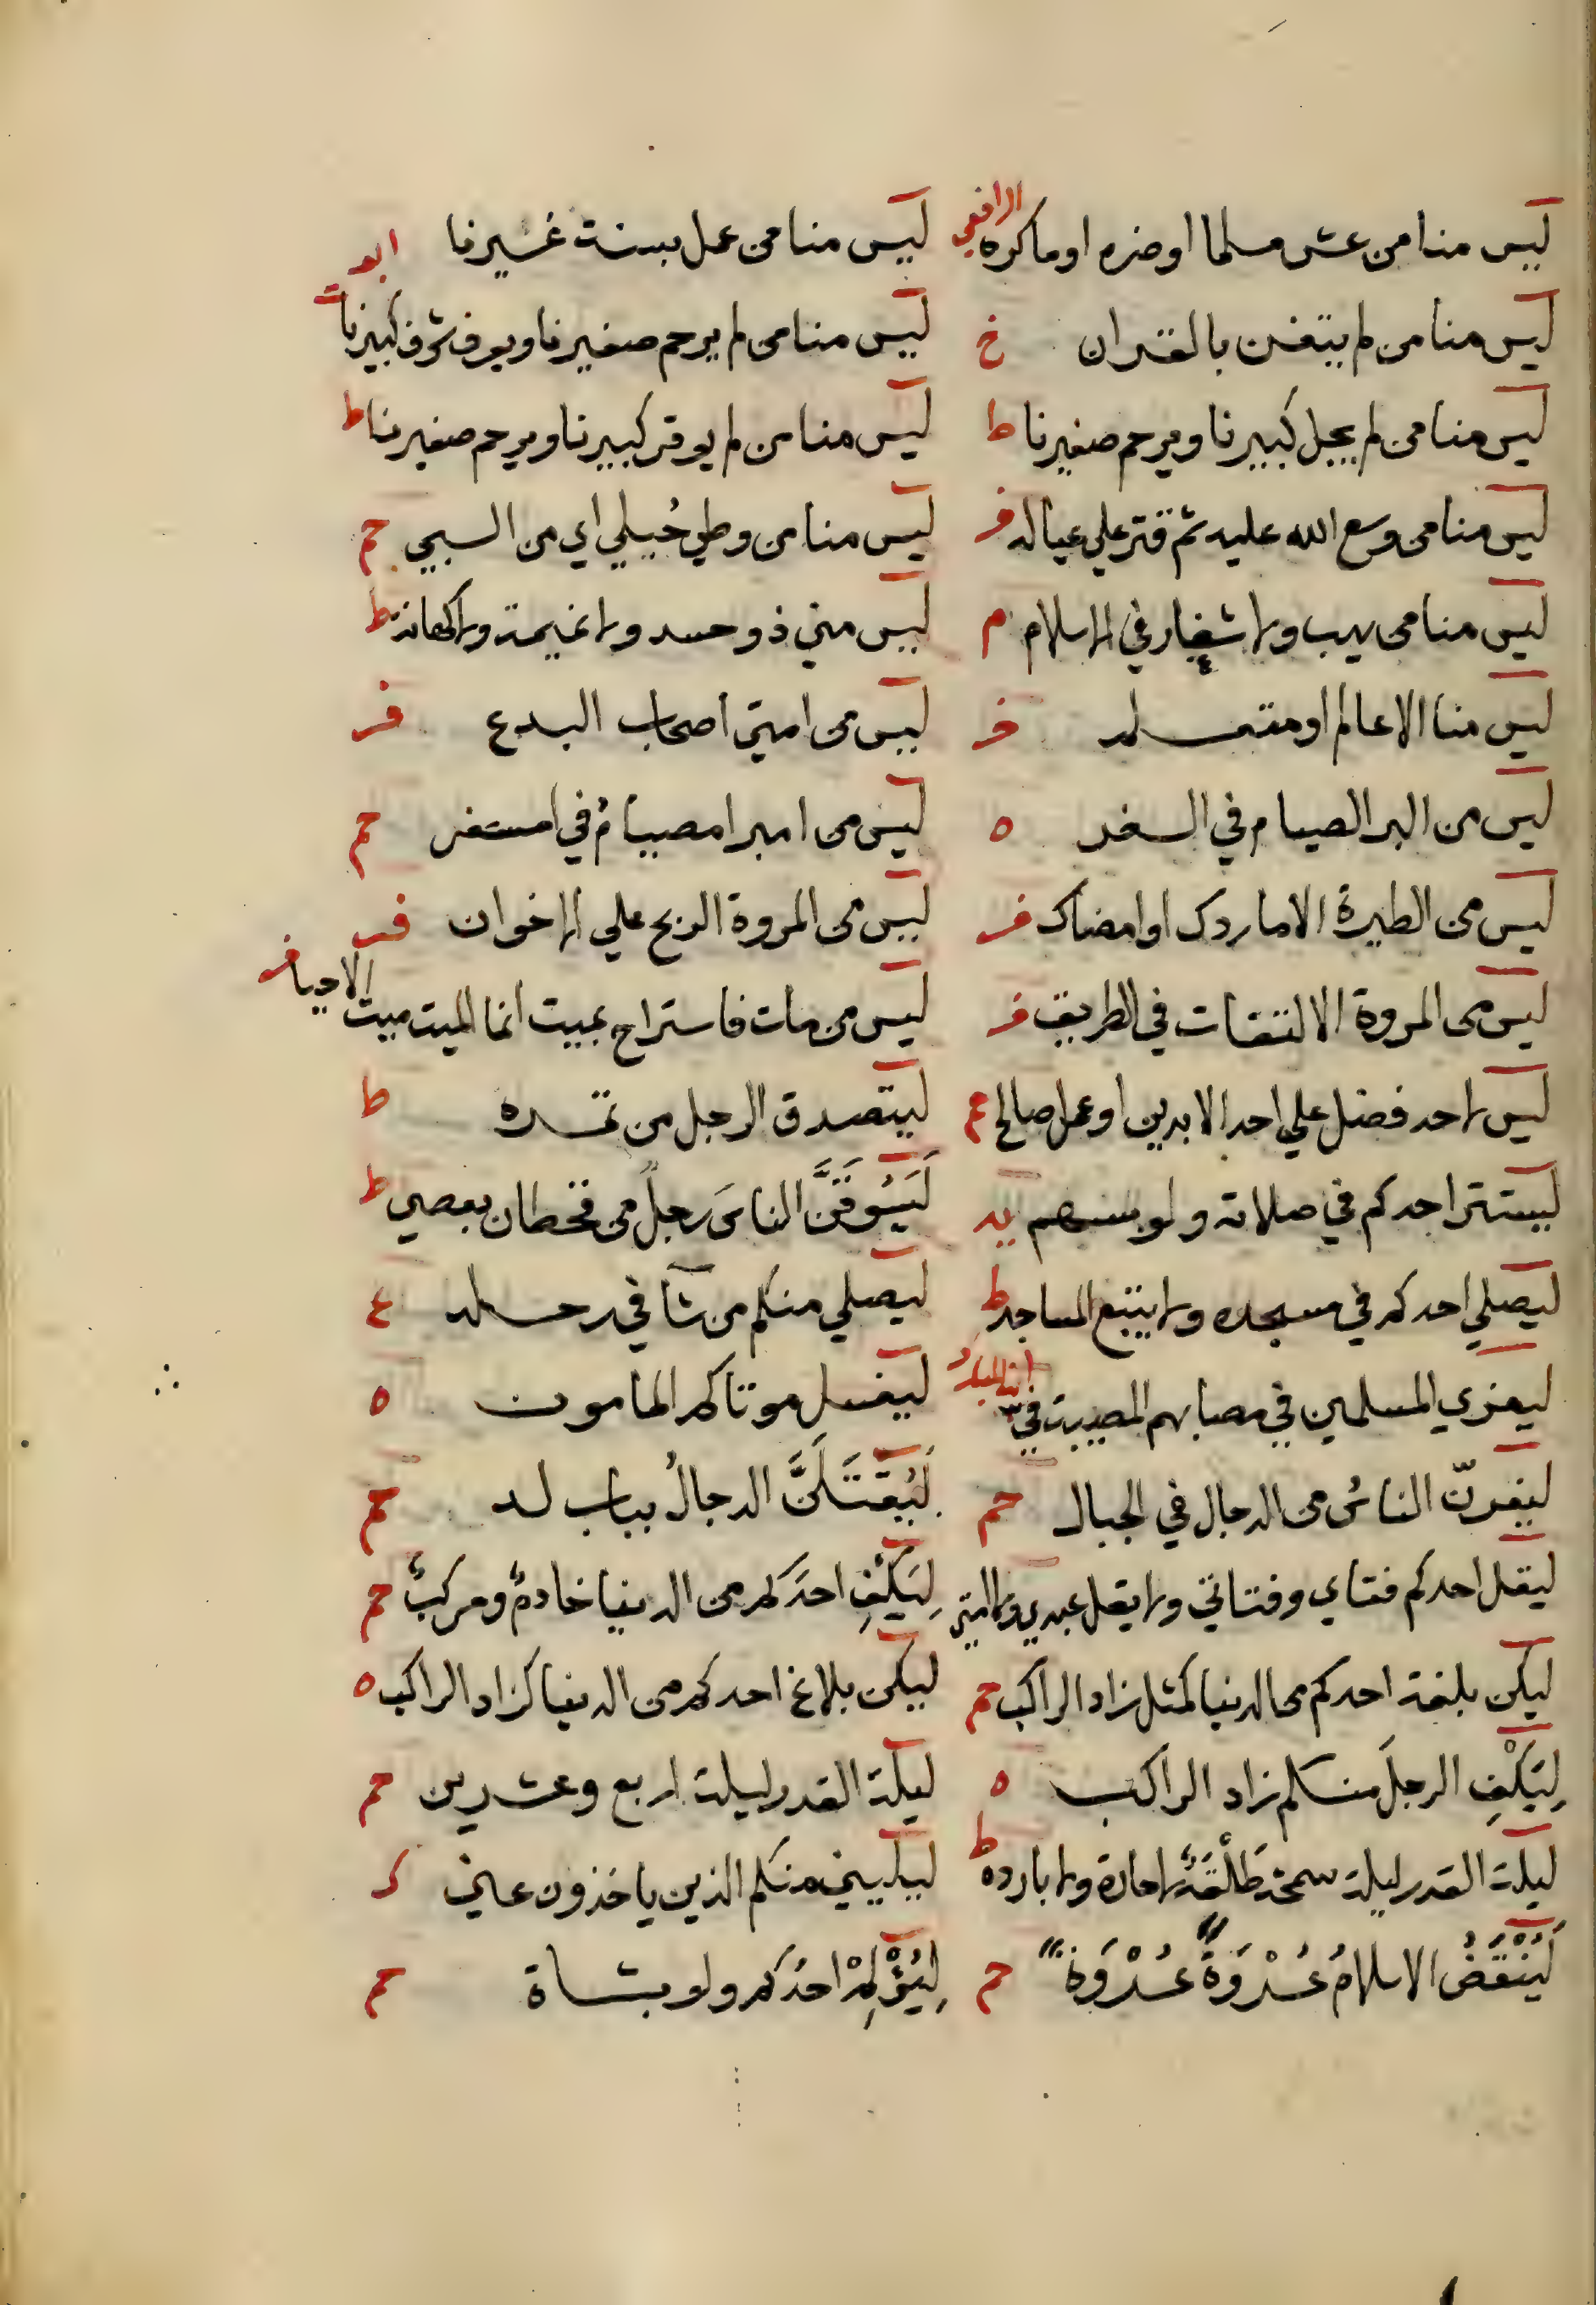 ليس منا من غش مسلما او ضره او ماكره الرافعي
ليس منا من عمل بسنة غيرنا ابو
ليس منا من لم يتغن بالقران خ
ليس منا من لم يرحم صغيرنا ويعرف شرف كبيرنا ت
ليس منا من لم يجل كبيرنا ويرحم صغيرنا ط
ليس منا من لم يوقر كبيرنا ويرحم صغيرنا ط
ليس منا من وسع الله عليه ثم قتر علي عياله فر
ليس منا من وطي حُبيلي اي من السبي حم
ليس منا من يهب ولا شغار في الاسلام م
ليس مني ذو حسد ولا نميمة ولا كهانة ط
ليس منا الا عالم او متعلم فر
ليس من امتي اصحاب البدع فر
ليس من البر الصيام في السفر ه
ليس من امبر امصيامُ في امسفر حم
ليس من الطيرة الا ما ردك او امضاك فر
ليس من المروة الربح علي الاخوان فر
ليس من المروة الالتفات في الطريق فر
ليس من مات فاستراح بميت انما الميت ميت الاحيا فر
ليس لاحد فضل علي احد الا بدين او عمل صالح عم
ليتصدق الرجل من تمره ط
ليستتر احدكم في صلاته ولو بسهم يه
لَيَسُوقَنَّ الناسَ رجلٌ من قحطان بعصي ط
ليصلي احدكم في مسجده ولا يتتبع المساجد ط
ليصلي منكم من شآ في رحله ع
ليعزي المسلمين في مصابهم المصيبة في ابن المبارك
ليغسل موتاكم المامون ه
ليفرنّ الناسُ من الدجال في الجبال حم
لَيُقتَلَنَّ الدجالُ بباب لد حم
ليقل احدكم فتاي وفتاتي ولا يقل عبدي ولا امتي
لِيَكْفِ احدَكم من الدنيا خادمٌ ومركبٌ حم
ليكن بلغة احدكم من الدنيا كمثل زاد الراكب حم
ليكن بلاغ احدكم من الدنيا كزاد الراكب ه
لِيَكْفِ الرجلَ منكم زاد الراكب ه
ليلة القدر ليلة اربع وعشرين حم
ليلة القدر ليلة سمحة طَلْقَةٌ لا حارة ولا باردة ط
ليليني منكم الذين ياخذون عني ك
لَيُنْقَضَنَّ الاسلامُ عُرْوَةً عُرْوَةً حم
لِيُؤْلِمْ احدُكم ولو بشاة حم